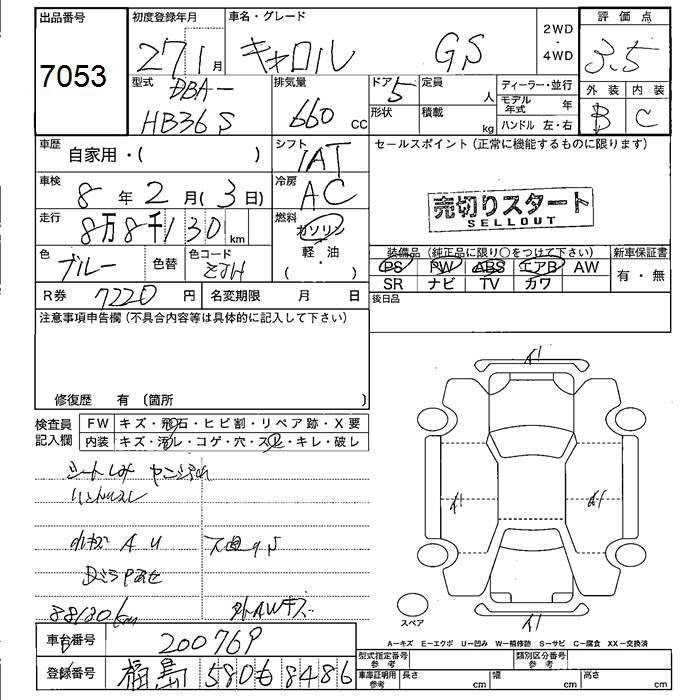 出品番号
7053
初度登録年月
27 1 月
車名・グレード
キャロル GS
2WD
・
4WD
評価点
3.5
外装 内装
B C
型式
DBA-
HB36S
排気量
660 cc
ドア 5
形状
定員 人
積載 kg
ディーラー・並行
モデル年式 年
ハンドル 左・右
車歴
自家用・( )
シフト
IAT
セールスポイント(正常に機能するものに限ります)
車検
8 年 2 月(3日)
冷房
AC
売切りスタート
SELLOUT
走行
8万8千130 km
燃料
ガソリン
軽・油
( )
色
ブルー
色替
色コード
ZJH
装備品(純正品に限り○をつけて下さい)
PS PW ABS エアB AW
SR ナビ TV カワ
新車保証書
有・無
R券 7220 円
名変期限 月 日
後日品
注意事項申告欄(不具合内容等は具体的に記入して下さい)
修復歴 有 〔箇所 〕
検査員
記入欄
FW キズ・飛石・ヒビ割・リペア跡・X要
内装 キズ・汚レ・コゲ・穴・スレ・キレ・破レ
ハンドルスレ
A U
88130km
外AWキズ
スペア
A-キズ E-エクボ U-凹み W-補修跡 S-サビ C-腐食 XX-交換済
車台番号 200769
登録番号 福島 580 6 8486
型式指定番号
参考
類別区分番号
参考
車庫証明用
参考
長さ cm
幅 cm
高さ cm